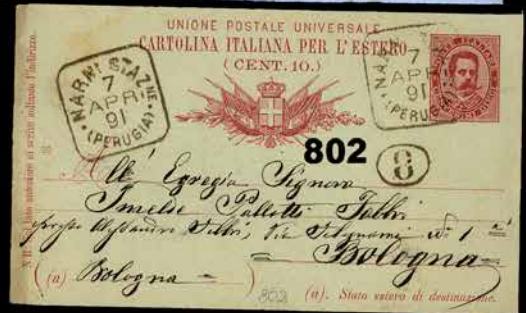 UNIONE POSTALE UNIVERSALE
CARTOLINA ITALIANA PER L'ESTERO
(CENT. 10.)
NARNI STAZNE
7
APR
91
(PERUGIA)
NARNI
7
APR
91
(PERUGIA)
802
8
All' Egregia Signora
Imelde Pallotti Fabbri
presso Alessandro Fabbri, Via n° 1
Bologna
(a) Bologna
802
(a). Stato estero di destinazione.
N.B. Sul lato anteriore si scrive soltanto l'indirizzo.